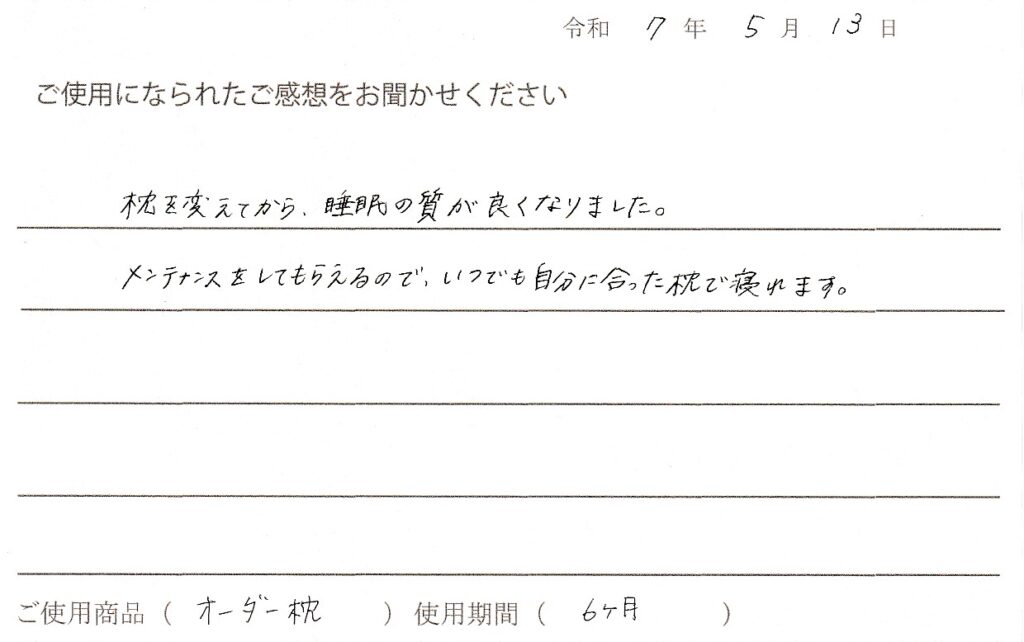 令和 7 年 5 月 13 日
ご使用になられたご感想をお聞かせください
枕を変えてから、睡眠の質が良くなりました。
メンテナンスをしてもらえるので、いつでも自分に合った枕で寝れます。
ご使用商品（ オーダー枕 ）使用期間（ 6ヶ月 ）